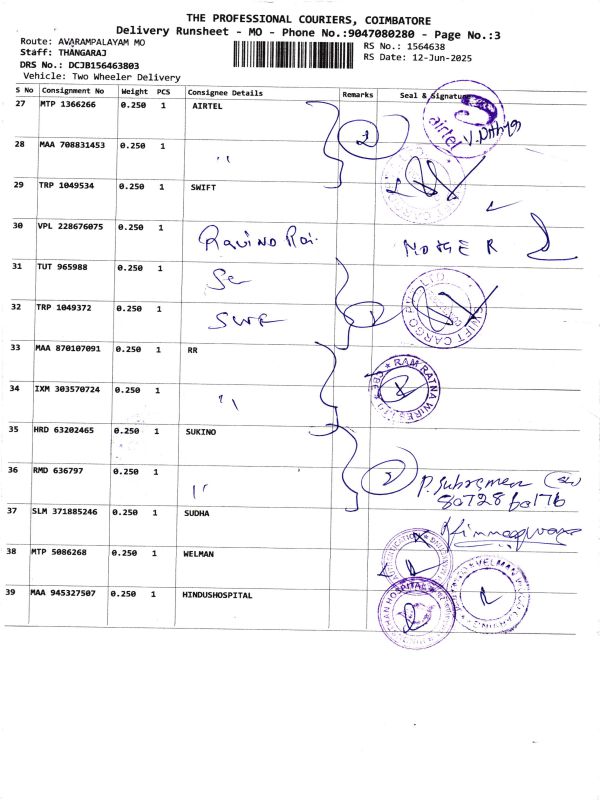 THE PROFESSIONAL COURIERS, COIMBATORE
Delivery Runsheet - MO - Phone No.:9047080280 - Page No.:3
Route: AVARAMPALAYAM MO
Staff: THANGARAJ
DRS No.: DCJB156463803
Vehicle: Two Wheeler Delivery
RS No.: 1564638
RS Date: 12-Jun-2025
S No Consignment No Weight PCS Consignee Details Remarks Seal & Signature
27 MTP 1366266 0.250 1 AIRTEL
airtel
28 MAA 708831453 0.250 1 "
2
29 TRP 1049534 0.250 1 SWIFT
30 VPL 228676075 0.250 1
MOHER
31 TUT 965988 0.250 1
32 TRP 1049372 0.250 1
1
SWIFT CARGO PVT LTD
33 MAA 870107091 0.250 1 RR
RAM RATNA WIRES LTD CBE
34 IXM 303570724 0.250 1 "
35 HRD 63202465 0.250 1 SUKINO
36 RMD 636797 0.250 1 "
2
37 SLM 371885246 0.250 1 SUDHA
38 MTP 5086268 0.250 1 WELMAN
39 MAA 945327507 0.250 1 HINDUSHOSPITAL
HOSPITAL